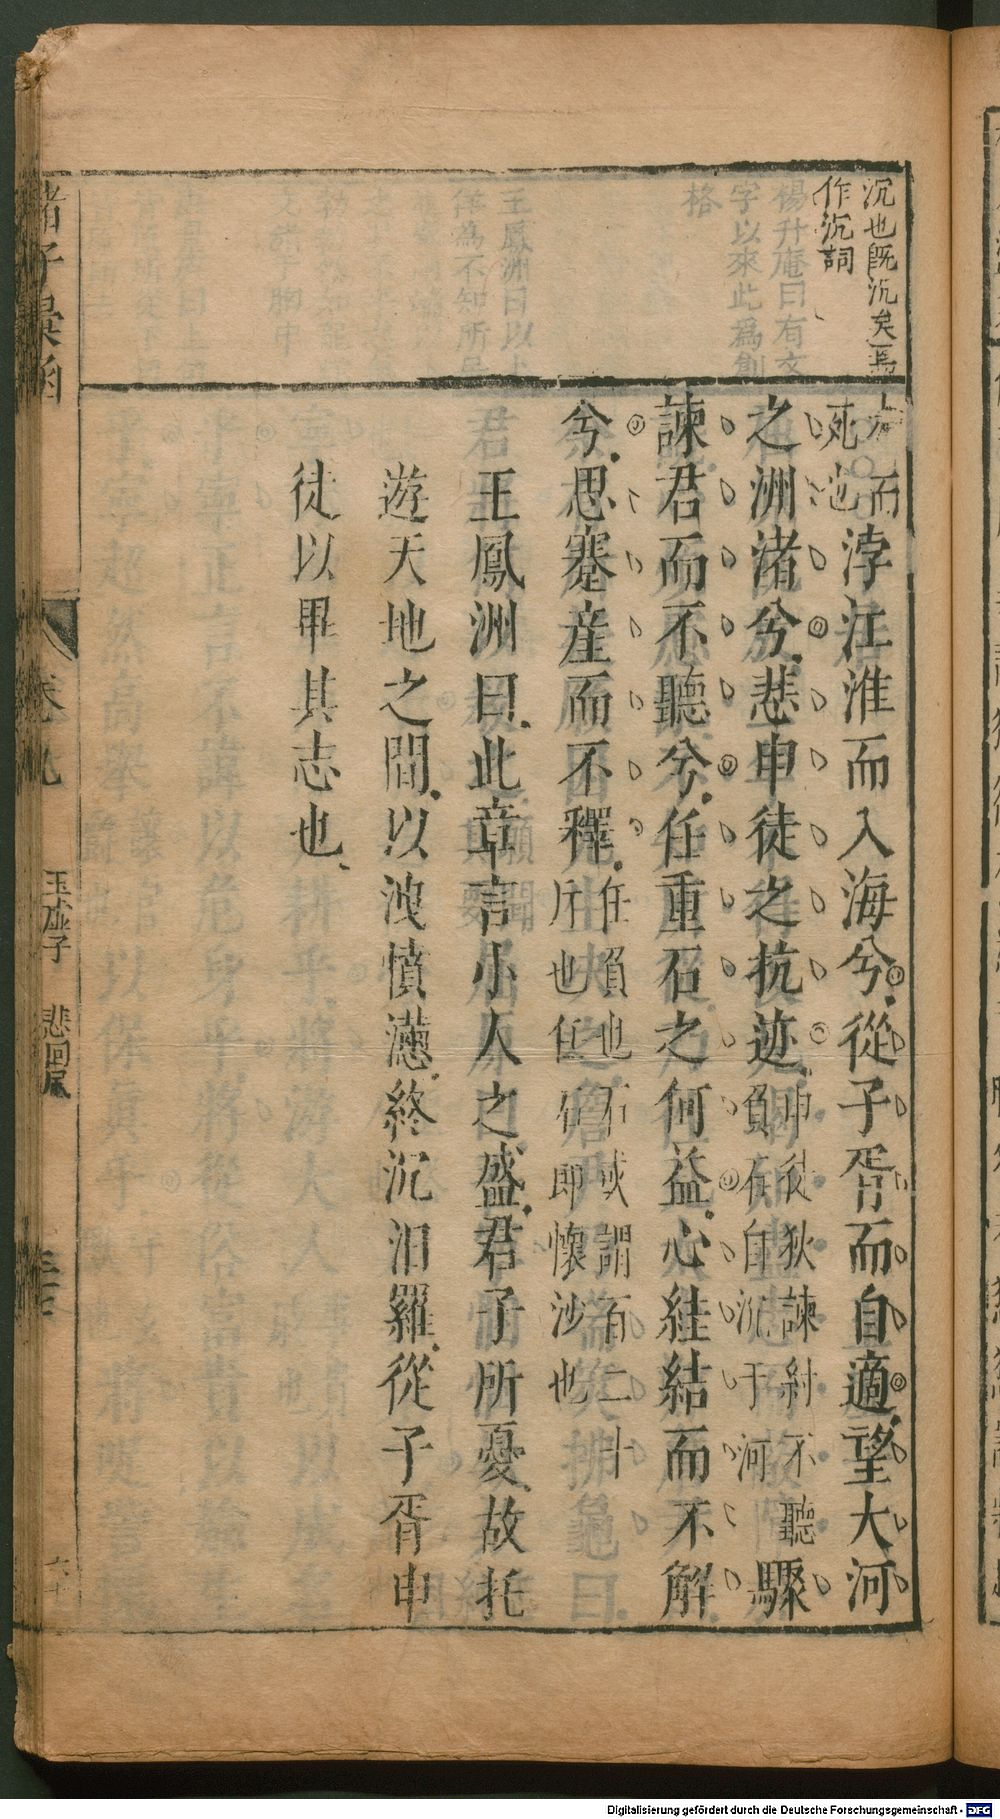 沉也旣沉矣焉
作沉詞
而
死也
浮江淮而入海兮從子胥而自適望大河
之洲渚兮悲申徒之抗迹
申徒狄諫紂不聽
負石自沉于河
驟
諫君而不聽兮任重石之何益心絓結而不解
兮思蹇産而不釋
任負也石或謂百二十
斤也任石即懷沙也
王鳳洲曰此章言小人之盛君子所憂故托
遊天地之間以洩憤懣終沉汨羅從子胥申
徒以畢其志也
諸子彙函
卷九
玉虛子 悲回風
Digitalisierung gefördert durch die Deutsche Forschungsgemeinschaft - DFG